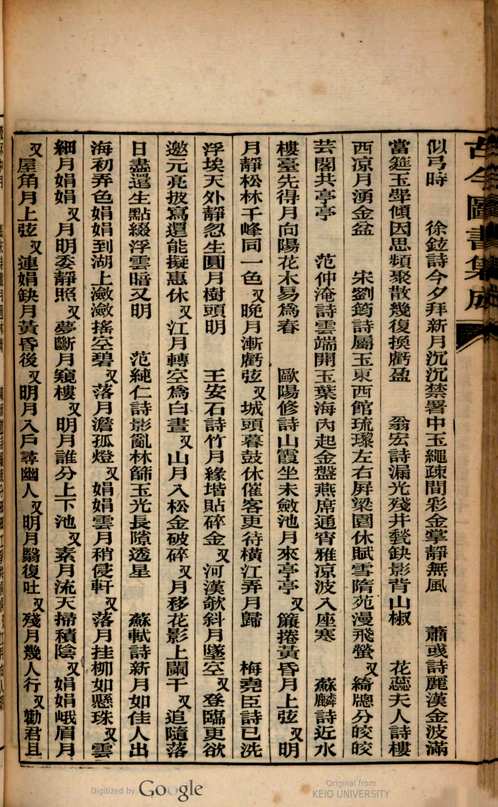 古今圖書集成
似弓時　徐鉉詩今夕拜新月沉沉禁署中玉繩疎間彩金掌靜無風　蕭彧詩麗漢金波滿
當筵玉斝傾因思頻聚散幾復換虧盈　翁宏詩漏光殘井甃缺影背山椒　花蕊夫人詩樓
西涼月湧金盆　宋劉筠詩屬玉東西館琉璃左右屏梁園休賦雪隋苑漫飛螢又綺牕分皎皎
芸閣共亭亭　范仲淹詩雲端開玉葉海內起金盤燕席通宵雅涼波入座寒　蘇麟詩近水
樓臺先得月向陽花木易爲春　歐陽修詩山霞坐未斂池月來亭亭又簾捲黃昏月上弦又明
月靜松林千峰同一色又晚月漸虧弦又城頭暮鼓休催客更待橫江弄月歸　梅堯臣詩已洗
浮埃天外靜忽生圓月樹頭明　王安石詩竹月緣堦貼碎金又河漢欹斜月墜空又登臨更欲
邀元亮披寫還能擬惠休又江月轉空爲白晝又山月入松金破碎又月移花影上闌干又追隨落
日盡還生點綴浮雲暗又明　范純仁詩影亂林篩玉光長隙透星　蘇軾詩新月如佳人出
海初弄色娟娟到湖上瀲瀲搖空碧又落月澹孤燈又娟娟雲月稍侵軒又落月挂柳如懸珠又雲
細月娟娟又月明委靜照又夢斷月窺樓又明月誰分上下池又素月流天掃積陰又娟娟峨眉月
又屋角月上弦又連娟缺月黃昏後又明月入戶尋幽人又明月翳復吐又殘月幾人行又勸君且
Digitized by Google
Original from
KEIO UNIVERSITY